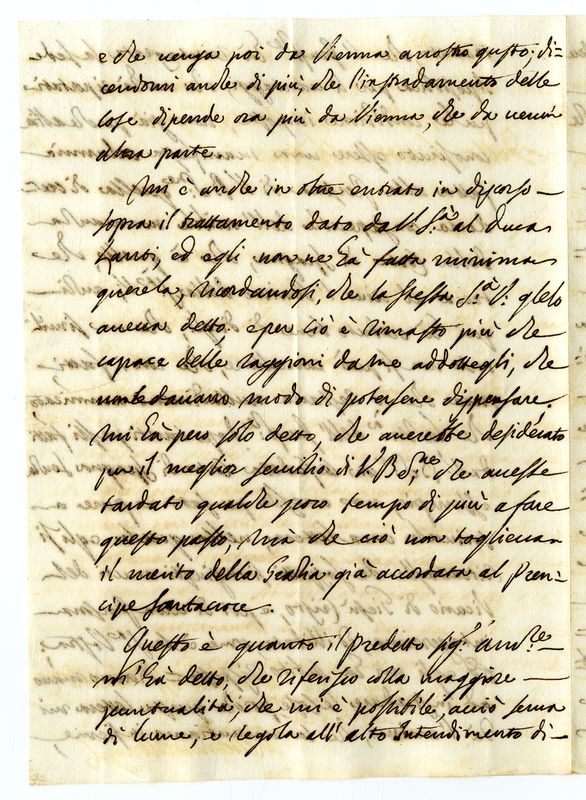 e che venga poi da Vienna a nostro gusto; di=
cendomi anche di più, che l'instradamento delle
cose dipende ora più da Vienna, che da verun'
altra parte.
Mi è anche in oltre entrato in discorso
sopra il trattamento dato da V. S.tà al Duca
Lanti, ed egli non ne hà fatta minima
querela, ricordandosi, che la stessa S.tà V. glelo
aveva detto, e per ciò è rimasto più che
capace delle raggioni da me addottegli, che
non le davano modo di potersene dispensare.
Mi hà però solo detto, che averebbe desiderato
per il meglior servitio di V.ra B.ne che avesse
tardato qualche poco tempo di più a fare
questo passo, mà che ciò non toglieva
il merito della Gratia già accordata al Pren=
cipe Santacroce.
Questo è quanto il predetto Sig.r Amb.re
mi hà detto, che riferisco colla maggiore
puntualità, che mi è possibile, acciò serva
di lume, e regola all'alto Intendimento di